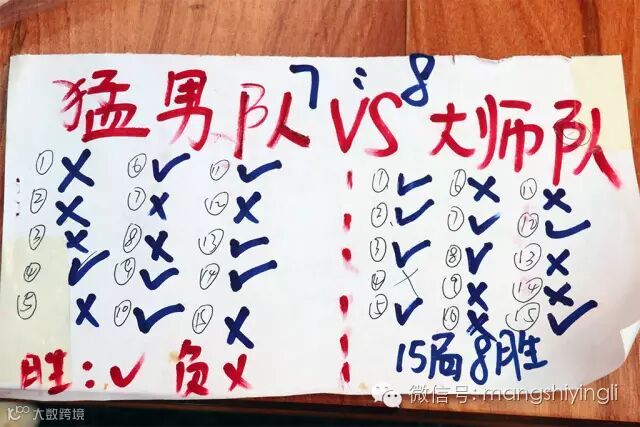 7:8
猛男队 VS 大师队
① × ⑥ ✓ ⑪ ✓ ① ✓ ⑥ × ⑪ ×
② × ⑦ × ⑫ × ② ✓ ⑦ ✓ ⑫ ✓
③ × ⑧ × ⑬ ✓ ③ ✓ ⑧ ✓ ⑬ ×
④ ✓ ⑨ ✓ ⑭ ✓ ④ × ⑨ × ⑭ ×
⑤ × ⑩ ✓ ⑮ × ⑤ ✓ ⑩ × ⑮ ✓
胜:✓ 负 × 15局8胜
微信号: mangshiyingli
大数跨境